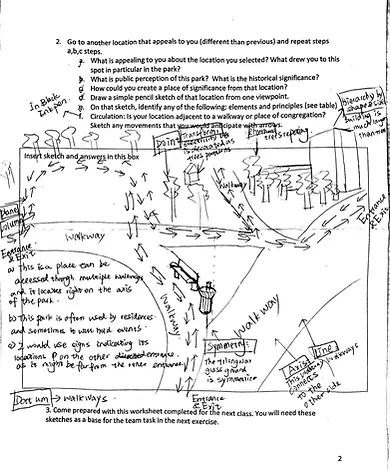 2. Go to another location that appeals to you (different than previous) and repeat steps
a,b,c steps.
a. What is appealing to you about the location you selected? What drew you to this
spot in particular in the park?
b. What is public perception of this park? What is the historical significance?
c. How could you create a place of significance from that location?
d. Draw a simple pencil sketch of that location from one viewpoint.
e. On that sketch, identify any of the following: elements and principles (see table)
f. Circulation: Is your location adjacent to a walkway or place of congregation?
Sketch any movements that you would anticipate with arrows.
In Black
Ink pen.
Hierarchy by
shape & size
building is
much larger
than
Point
Transform:
electricity
is decorated as
trees
Rhythm:
trees repeating
Insert sketch and answers in this box
Walkway
Entrance
& Exit
Entrance
& Exit
Walkway
a) This is a place can be
accessed through multiple walkways
and it locates right on the axis
of the park.
b) This park is often used by residences
and sometimes to use hold events.
c) I would use signs indicating its
locations on the other entrance.
as it might be far from the other entrance.
Walkway
Walkway
Symmetry:
The triangular
grass ground
is symmetrical
Axis
Line
walkways
This
connects
to the
other side
Datum
walkways
Entrance
& Exit
3. Come prepared with this worksheet completed for the next class. You will need these
sketches as a base for the team task in the next exercise.
2